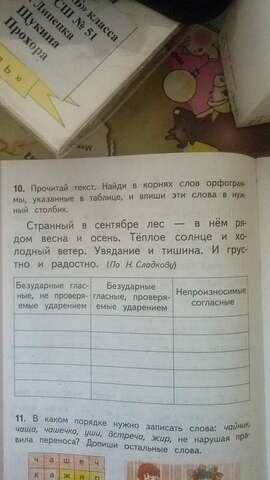 Ь» класса
СШ № 51
Липецка
Щукина
Прохора
10. Прочитай текст. Найди в корнях слов орфограм-
мы, указанные в таблице, и впиши эти слова в нуж-
ный столбик.
Странный в сентябре лес — в нём ря-
дом весна и осень. Тёплое солнце и хо-
лодный ветер. Увядание и тишина. И грус-
тно и радостно. (По Н. Сладкову)
Безударные глас-
ные, не проверя-
емые ударением
Безударные
гласные, проверя-
емые ударением
Непроизносимые
согласные
11. В каком порядке нужно записать слова: чайник,
чаща, чашечка, уши, встреча, жир, не нарушая пра-
вила переноса? Допиши остальные слова.
ч а ш е ч